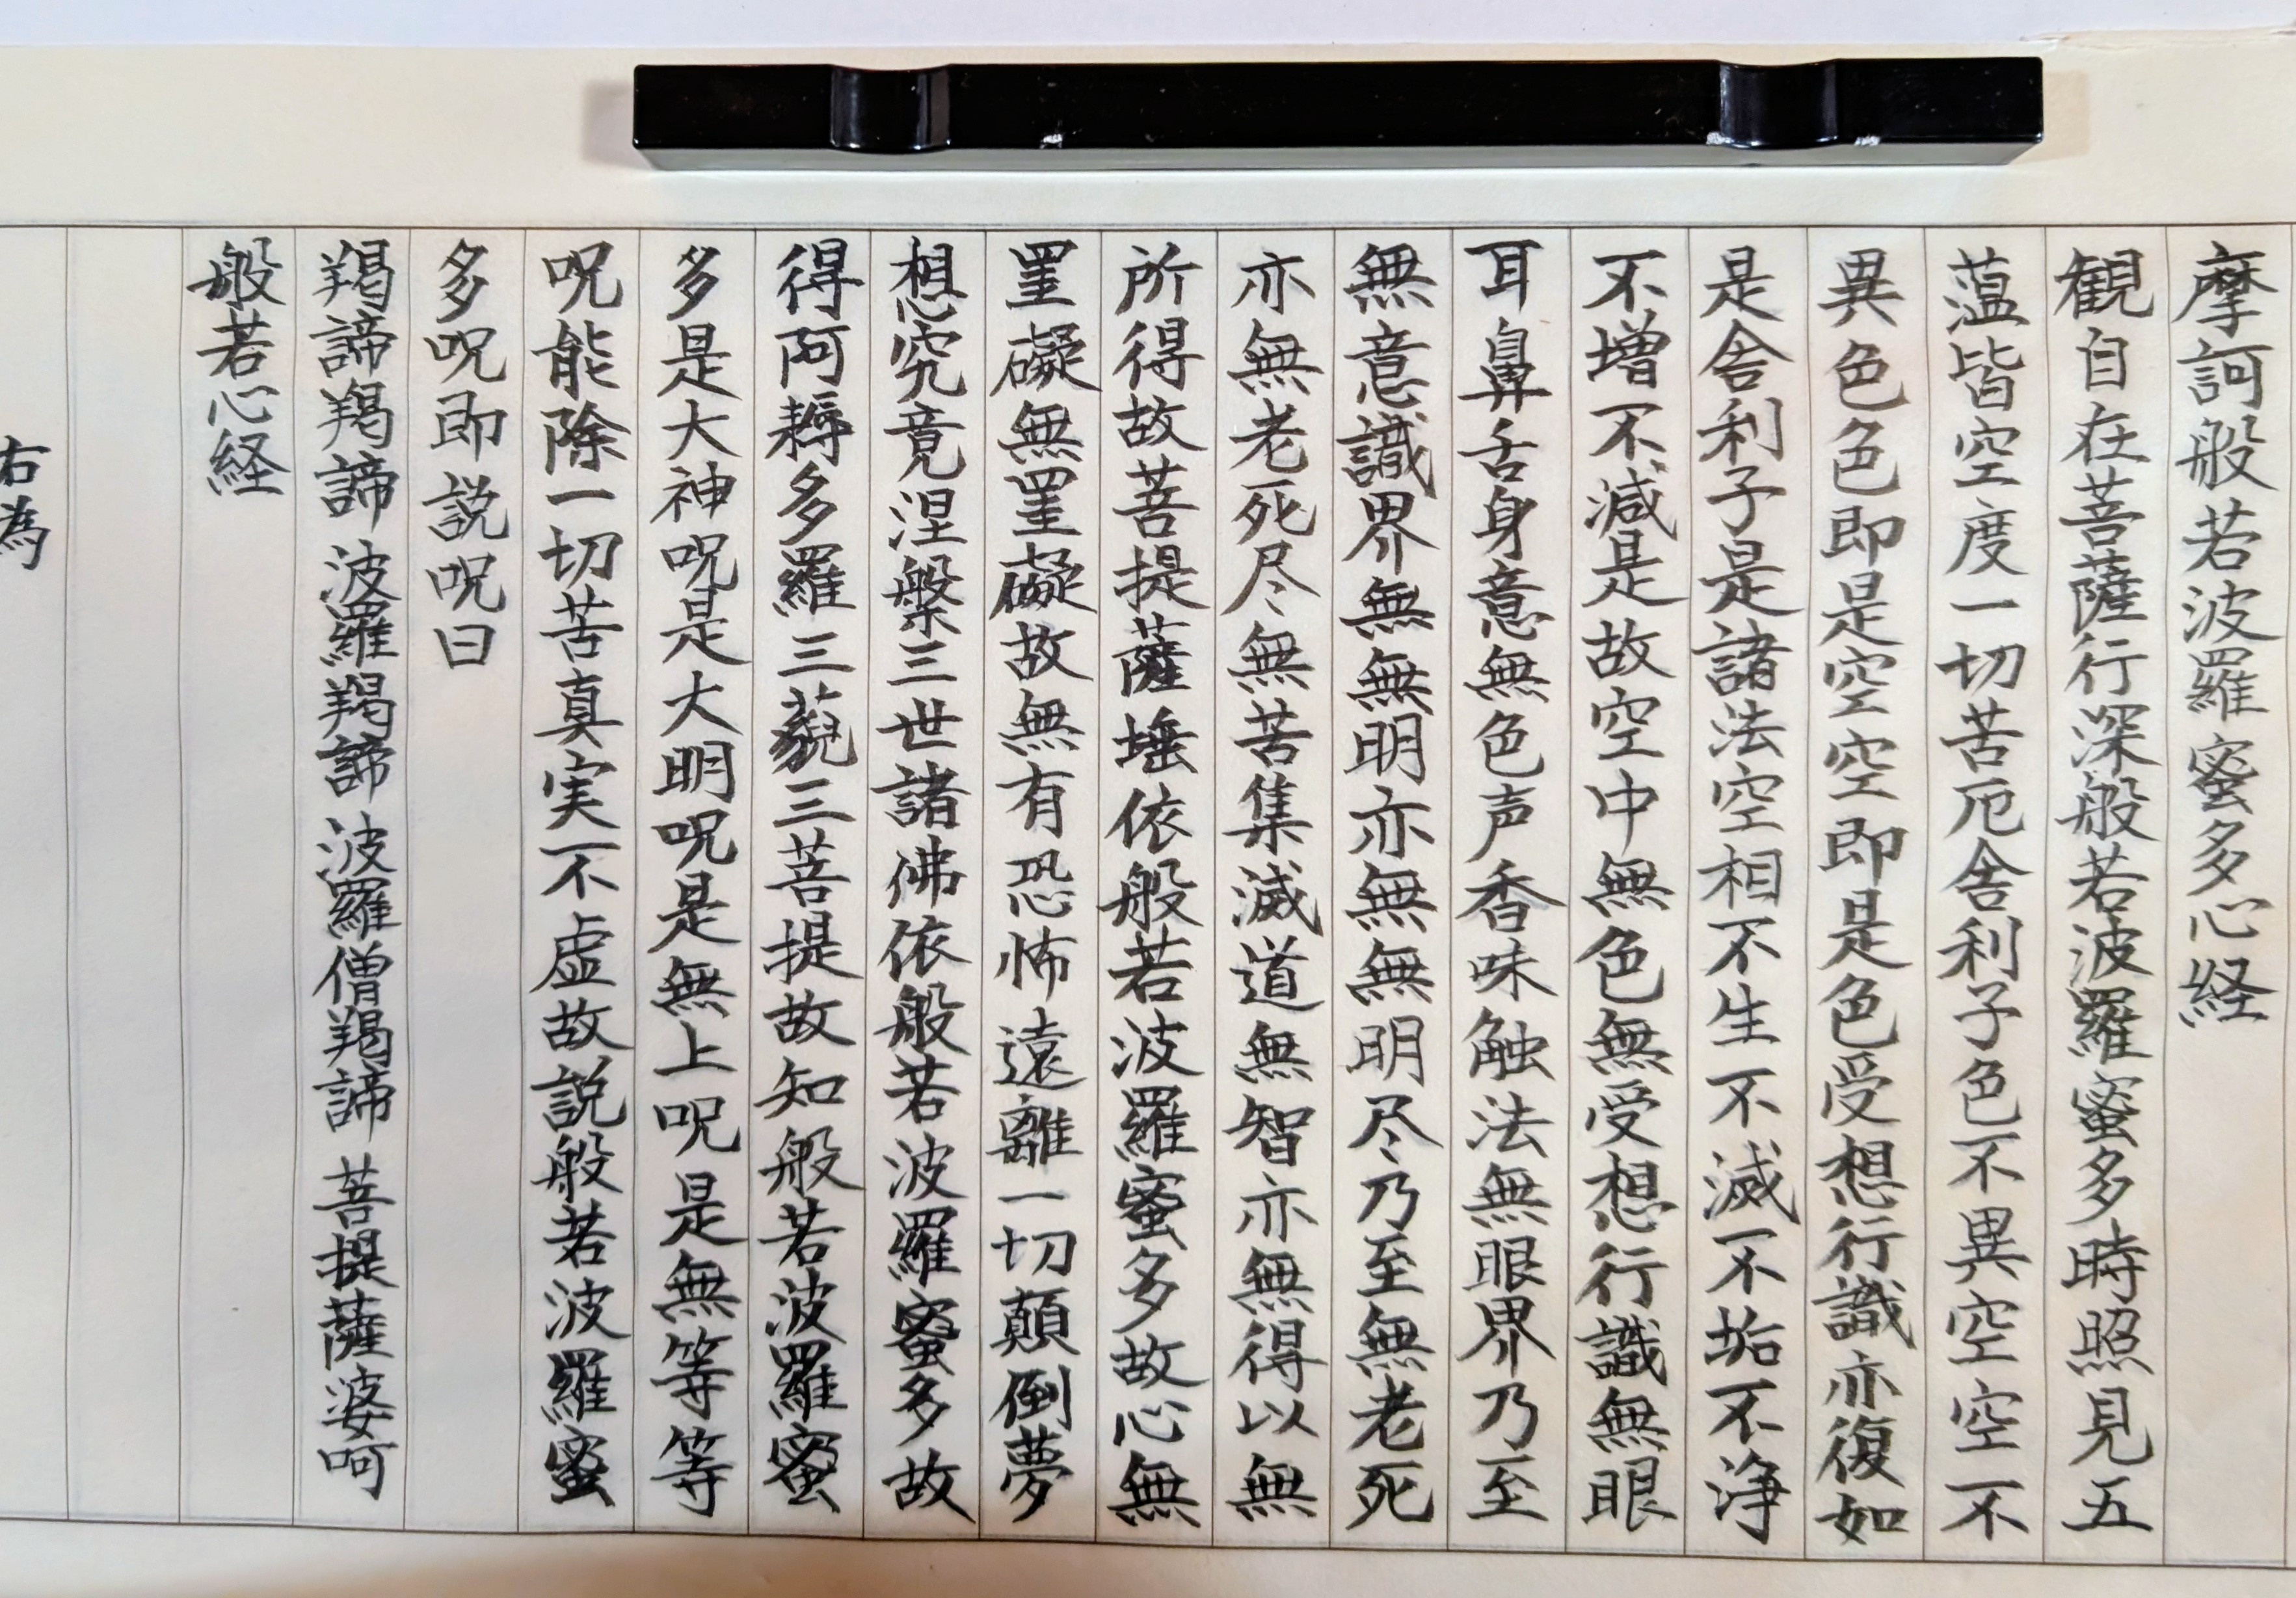 摩訶般若波羅蜜多心経
観自在菩薩行深般若波羅蜜多時照見五
薀皆空度一切苦厄舎利子色不異空空不
異色色即是空空即是色受想行識亦復如
是舎利子是諸法空相不生不滅不垢不浄
不増不減是故空中無色無受想行識無眼
耳鼻舌身意無色声香味触法無眼界乃至
無意識界無無明亦無無明尽乃至無老死
亦無老死尽無苦集滅道無智亦無得以無
所得故菩提薩埵依般若波羅蜜多故心無
罣礙無罣礙故無有恐怖遠離一切顛倒夢
想究竟涅槃三世諸佛依般若波羅蜜多故
得阿耨多羅三藐三菩提故知般若波羅蜜
多是大神呪是大明呪是無上呪是無等等
呪能除一切苦真実不虚故説般若波羅蜜
多呪即説呪曰
羯諦羯諦 波羅羯諦 波羅僧羯諦 菩提薩婆呵
般若心経
右為